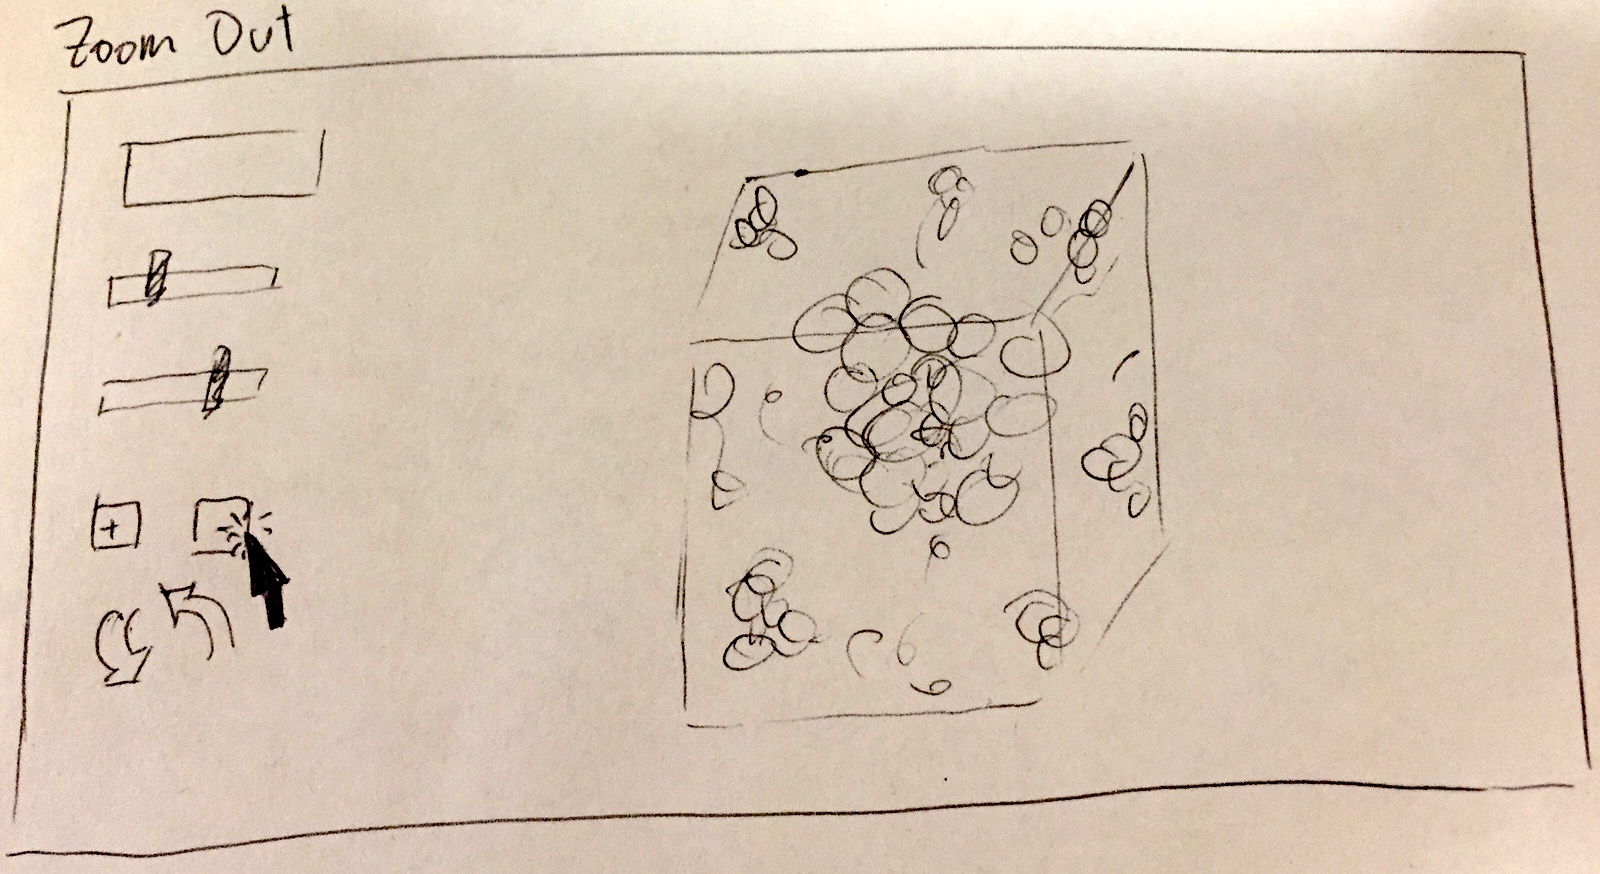 Zoom Out
+